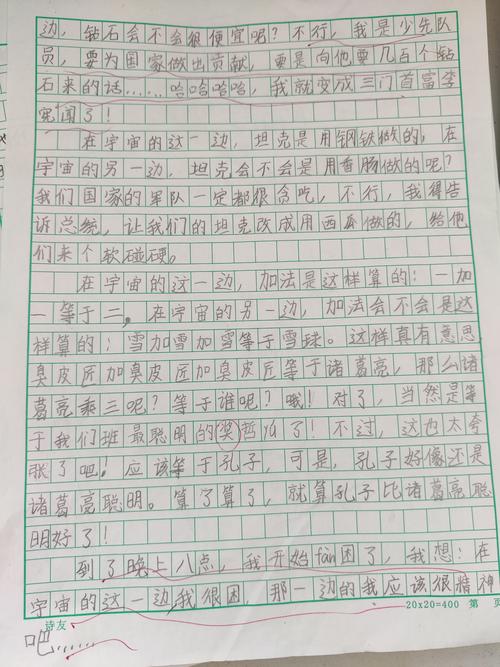 边，钻石会不会很便宜呢？不行，我是少先队
员，要为国家做出贡献，更是向他要几百个钻
石来的话……哈哈哈哈，我就变成三门首富李
宪闻了！
在宇宙的这一边，坦克是用钢铁做的，在
宇宙的另一边，坦克会不会是用香肠做的呢？
我们国家的军队一定都很贪吃，不行，我得告
诉总统，让我们的坦克改成用西瓜做的，给他
们来个软碰硬。
在宇宙的这一边，加法是这样算的：一加
一等于二，在宇宙的另一边，加法会不会是这
样算的：雪加雪加雪等于雪球。这样真有意思，
臭皮匠加臭皮匠加臭皮匠等于诸葛亮，那么诸
葛亮乘三呢？等于谁呢？哦！对了，当然是等
于我们班最聪明的奖哲了！不过，这也太夸
张了吧！应该等于孔子，可是，孔子好像还是
诸葛亮聪明。算了算了，就算孔子比诸葛亮聪
明好了！
到了晚上八点，我开始fan困了，我想：在
宇宙的这一边我很困，那一边的我应该很精神
诗友
20×20=400 第 页
吧……